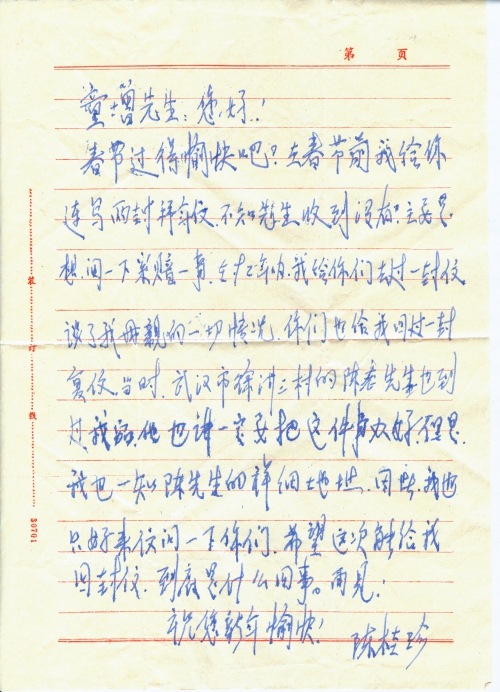 第 页
童增先生：您好！
春节过得愉快吧？在春节前我给你
连写两封拜年信，不知先生收到没有？主要是
想问一下索赔一事，在92年内，我给你们去过一封信
谈了我母亲的一切情况，你们也给我回过一封
复信，当时，武汉市徐洪三村的陈君先生也到
过我家，他也讲一定要把这件事办好，但是
我也一知陈先生的详细地址，因此，我也
只好来信问一下你们，希望这次能给我
回封信，到底是什么回事。再见！
祝您新年愉快！
陈桂珍
装 订 线
30701